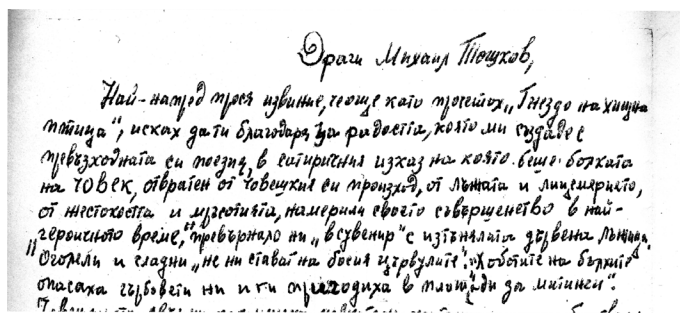 Драги Михаил Тошков,
Най-напред прося извинение, че още като прочетох „Гнездо на хищна
птица“, исках да ти благодаря за радостта, която ми създаде с
превъзходната си поезия, в сатиричния изказ на която беше болката
на човек, отвратен от човешкия си произход, от лъжата и лицемерието,
от жестокостта и мръсотията, намерили своето съвършенство в най-
героичното време, превърнало ни „в сувенир“ с изтънялата дървена лъжица.
„Оголели и гладни „не ни стават на босия цървулите“. „Хоботите на бълхите
опасаха гърбовете ни и ги пригодиха в площади за митинги“.